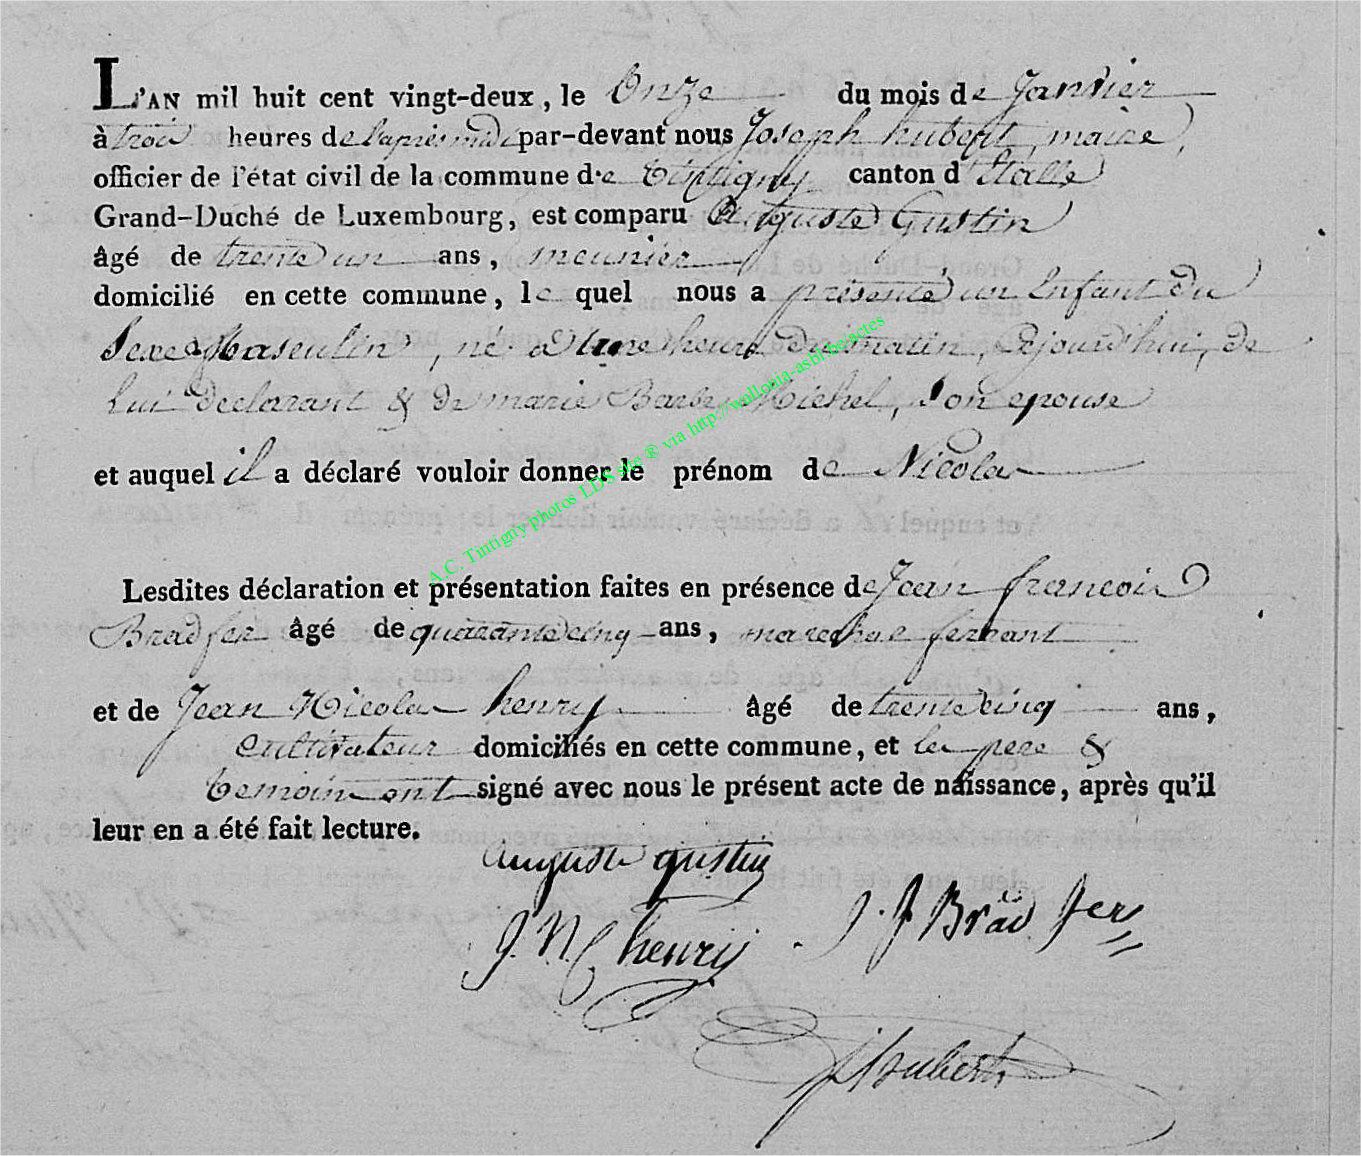 L'AN mil huit cent vingt-deux, le Onze du mois de Janvier
à trois heures de l'apresmidi par-devant nous Joseph hubert, maire,
officier de l'état civil de la commune de Tintigny canton d'Etalle
Grand-Duché de Luxembourg, est comparu Auguste Gustin
âgé de trente un ans, meunier
domicilié en cette commune, le quel nous a présenté un Enfant du
Sexe Masculin, né a Une heure du matin, Ajourd'hui, de
Lui declarant & de marie Barbe Michel, Son epouse
et auquel il a déclaré vouloir donner le prénom de Nicolas
A.C. Tintigny photos LDS site ® via http://wallonia-asbl.be/actes
Lesdites déclaration et présentation faites en présence de Jean francois
Bradfer âgé de quarante cinq ans, marechal ferrant
et de Jean Nicolas henry âgé de trente cinq ans,
cultivateur domiciliés en cette commune, et les pere &
temoins ont signé avec nous le présent acte de naissance, après qu'il
leur en a été fait lecture.
auguste gustin
J. N. henry J. J. Brad fer
J hubert